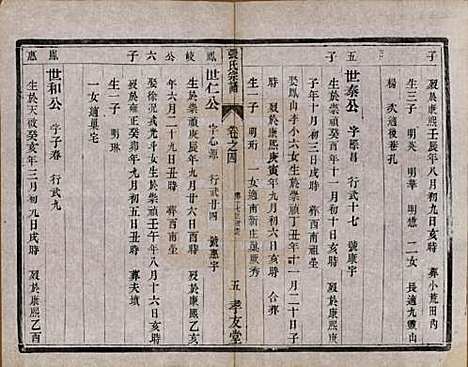 子 歿於康熙壬辰年八月初九日亥時 葬小荒田內
生三子 明英 明華 明懋 二女 長適九靈山
楊 次適後巷孔
五 世泰公 字際昌 行武十七 號康宇
子 生於崇禎癸酉年十一月初十日亥時 葬西南祖坐
娶鳳山李小六女生於崇禎丁丑年十一月二十日子時
歿於康熙庚寅年 月初六日亥時 合葬
生一子 明珩 一女適南新庄 康秀
張氏宗譜 卷之四 五 孝友堂
鳳 世仁公 字心源 行武廿四 號惠宇
歿 生於崇禎庚辰年四月初三日亥時 歿於康熙乙
公 年六月二十九日丑時 葬西南坐
六 娶徐滉武光斗女生於崇禎壬午年八月十六日亥時
子 歿於雍正癸卯年九月初五日丑時 葬夫墳
生一子 明琳
一女適巢宅
鳳 世和公 字子春 行武九
惠 生於天啟癸亥年三月初九日戌時 歿於康熙乙酉